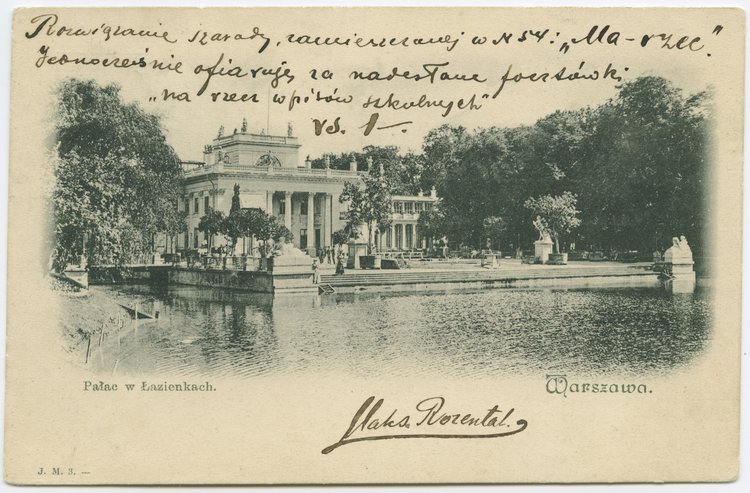 Rozwiązanie szarady, zamieszczanej w N 54: „Ma-rzec".
Jednocześnie ofiaruję za nadesłane pocztówki
„na rzecz wpisów szkolnych"
rs. 1 —
Pałac w Łazienkach.
Warszawa.
Maks. Rozental.
J. M. 3. —